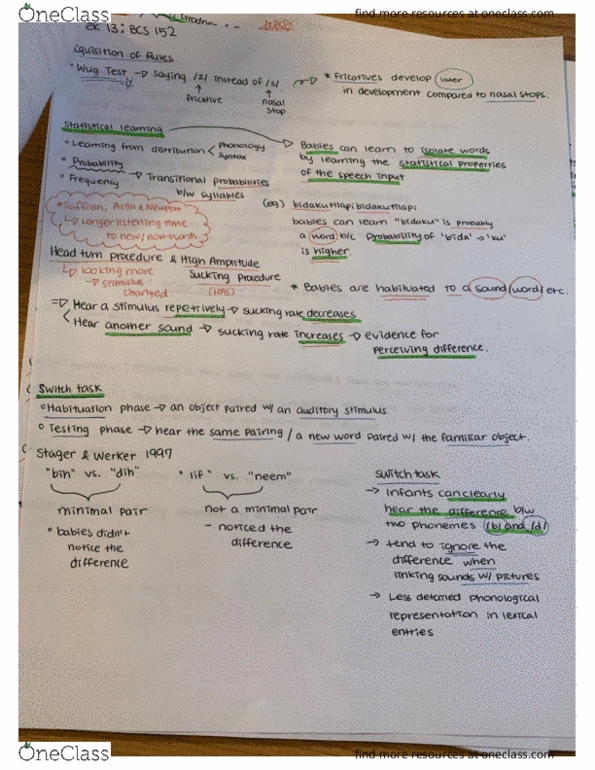 OneClass
find more resources at oneclass.com
ek 13: BCS 152
cquisition of Rules
• Wug Test → saying /z/ instead of /s/
↑ fricative
↑ nasal stop
* Fricatives develop later
in development compared to nasal stops.
Statistical learning
• Learning from distribution < Phonology
Syntax
• Probability
• Frequency
→ Transitional probabilities
b/w syllables
→ Babies can learn to isolate words
by learning the statistical properties
of the speech input
(eg) bidakutilapibidakutilapi
babies can learn "bidaku" is probably
a word b/c probability of 'bida' → 'ku'
is higher.
*Saffran, Aslin & Newport
↳ Longer listening time
to new/non-words
Head turn procedure & High Amplitude
Sucking Procedure
(HAS)
↳ looking more
→ stimulus
changed
* Babies are habituated to a sound/word/etc.
⇒ Hear a stimulus repetitively → sucking rate decreases
Hear another sound → sucking rate increases → evidence for
perceiving difference.
Switch task
• Habituation phase → an object paired w/ an auditory stimulus.
• Testing phase → hear the same pairing / a new word paired w/ the familiar object.
Stager & Werker 1997
"bih" vs. "dih"
minimal pair
• babies didn't
notice the
difference
• "lif" vs. "neem"
not a minimal pair
- noticed the
difference
Switch task
→ Infants can clearly
hear the difference b/w
two phonemes /b/ and /d/
→ tend to ignore the
difference when
linking sounds w/ pictures
→ Less detailed phonological
representation in lexical
entries
OneClass
find more resources at oneclass.com